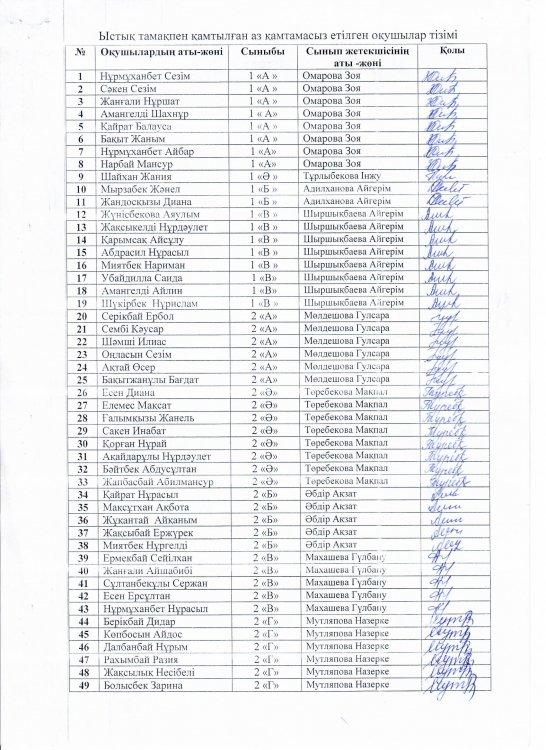 Ыстық тамақпен қамтылған аз қамтамасыз етілген оқушылар тізімі
№ Оқушылардың аты-жөні Сыныбы Сынып жетекшісінің аты -жөні Қолы
1 Нұрмұханбет Сезім 1 «А » Омарова Зоя
2 Сәкен Сезім 1 «А » Омарова Зоя
3 Жанғали Нұршат 1 «А » Омарова Зоя
4 Амангелді Шахнұр 1 «А» Омарова Зоя
5 Қайрат Балауса 1 «А» Омарова Зоя
6 Бақыт Жаным 1 «А» Омарова Зоя
7 Нұрмұханбет Айбар 1 «А» Омарова Зоя
8 Нарбай Мансур 1 «А» Омарова Зоя
9 Шайхан Жания 1 «Ә » Тұрлыбекова Інжу
10 Мырзабек Жәнел 1 «Б » Адилханова Айгерім
11 Жандосқызы Диана 1 «Б » Адилханова Айгерім
12 Жүнісбекова Аяулым 1 «В » Шыршықбаева Айгерім
13 Жақсыкелді Нұрдәулет 1 «В » Шыршықбаева Айгерім
14 Қарымсақ Айсұлу 1 «В» Шыршықбаева Айгерім
15 Абдрасил Нұрасыл 1 «В » Шыршықбаева Айгерім
16 Миятбек Нариман 1 «В » Шыршықбаева Айгерім
17 Убайдилла Саида 1 «В » Шыршықбаева Айгерім
18 Амангелді Айлин 1 «В » Шыршықбаева Айгерім
19 Шүкірбек Нұрислам 1 «В » Шыршықбаева Айгерім
20 Серікбай Ербол 2 «А» Мөлдешова Гүлсара
21 Сембі Кәусар 2 «А» Мөлдешова Гүлсара
22 Шәмші Илиас 2 «А» Мөлдешова Гүлсара
23 Оңласын Сезім 2 «А» Мөлдешова Гүлсара
24 Ақтай Өсер 2 «А» Мөлдешова Гүлсара
25 Бақытжанұлы Бағдат 2 «А» Мөлдешова Гүлсара
26 Есен Диана 2 «Ә» Төребекова Мақпал
27 Елемес Мақсат 2 «Ә» Төребекова Мақпал
28 Ғалымқызы Жанель 2 «Ә» Төребекова Мақпал
29 Сакен Инабат 2 «Ә» Төребекова Мақпал
30 Қорған Нұрай 2 «Ә» Төребекова Мақпал
31 Ақайдарұлы Нұрдәулет 2 «Ә» Төребекова Мақпал
32 Бәйтбек Абдусұлтан 2 «Ә» Төребекова Мақпал
33 Жапбасбай Абилмансур 2 «Ә» Төребекова Мақпал
34 Қайрат Нұрасыл 2 «Б» Әбдір Ақзат
35 Мақсұтхан Ақбота 2 «Б» Әбдір Ақзат
36 Жұқантай Айқаным 2 «Б» Әбдір Ақзат
37 Жақсыбай Ержүрек 2 «Б» Әбдір Ақзат
38 Миятбек Нұргелді 2 «Б» Әбдір Ақзат
39 Ермекбай Сейілхан 2 «В» Махашева Гүлбану
40 Жанғали Айшабибі 2 «В» Махашева Гүлбану
41 Сұлтанбекұлы Сержан 2 «В» Махашева Гүлбану
42 Есен Ерсұлтан 2 «В» Махашева Гүлбану
43 Нұрмұханбет Нұрасыл 2 «В» Махашева Гүлбану
44 Берікбай Дидар 2 «Г» Мутляпова Назерке
45 Көпбосын Айдос 2 «Г» Мутляпова Назерке
46 Далбанбай Нұрым 2 «Г» Мутляпова Назерке
47 Рахымбай Разия 2 «Г» Мутляпова Назерке
48 Жақсылық Несібелі 2 «Г» Мутляпова Назерке
49 Болысбек Зарина 2 «Г» Мутляпова Назерке